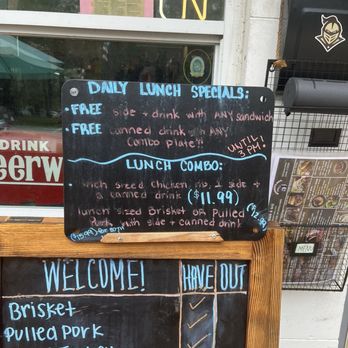 DRINK
eerw
DAILY LUNCH SPECIALS:
• FREE side + drink with ANY sandwich
• FREE canned drink with ANY
Combo plate!!
UNTIL
3 PM!
LUNCH COMBO:
sized chicken 1 side +
a canned drink ($11.99)
lunch sized Brisket OR Pulled
Pork with side + canned drink
($12.99)
($15.99)
WELCOME!
HAVE
OUT
BRISKET
PULLED PORK